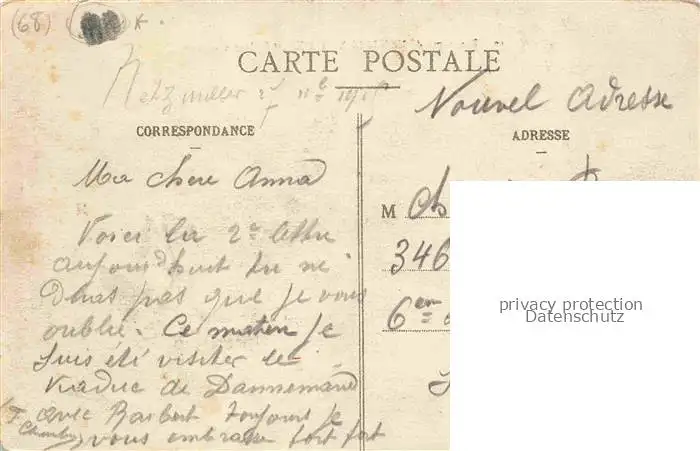 (68)
CARTE POSTALE
Nouvel Adresse
CORRESPONDANCE
ADRESSE
Ma chere Anna
Voici la 2e
aujourd'huit tu ne
Diras pas que je vous
oublie. Ce maten je
suis été visiter le
Viaduc de Dannemarie
avec Barbert toujours je
vous embrasse fort fort
M
346
6em
privacy protection
Datenschutz